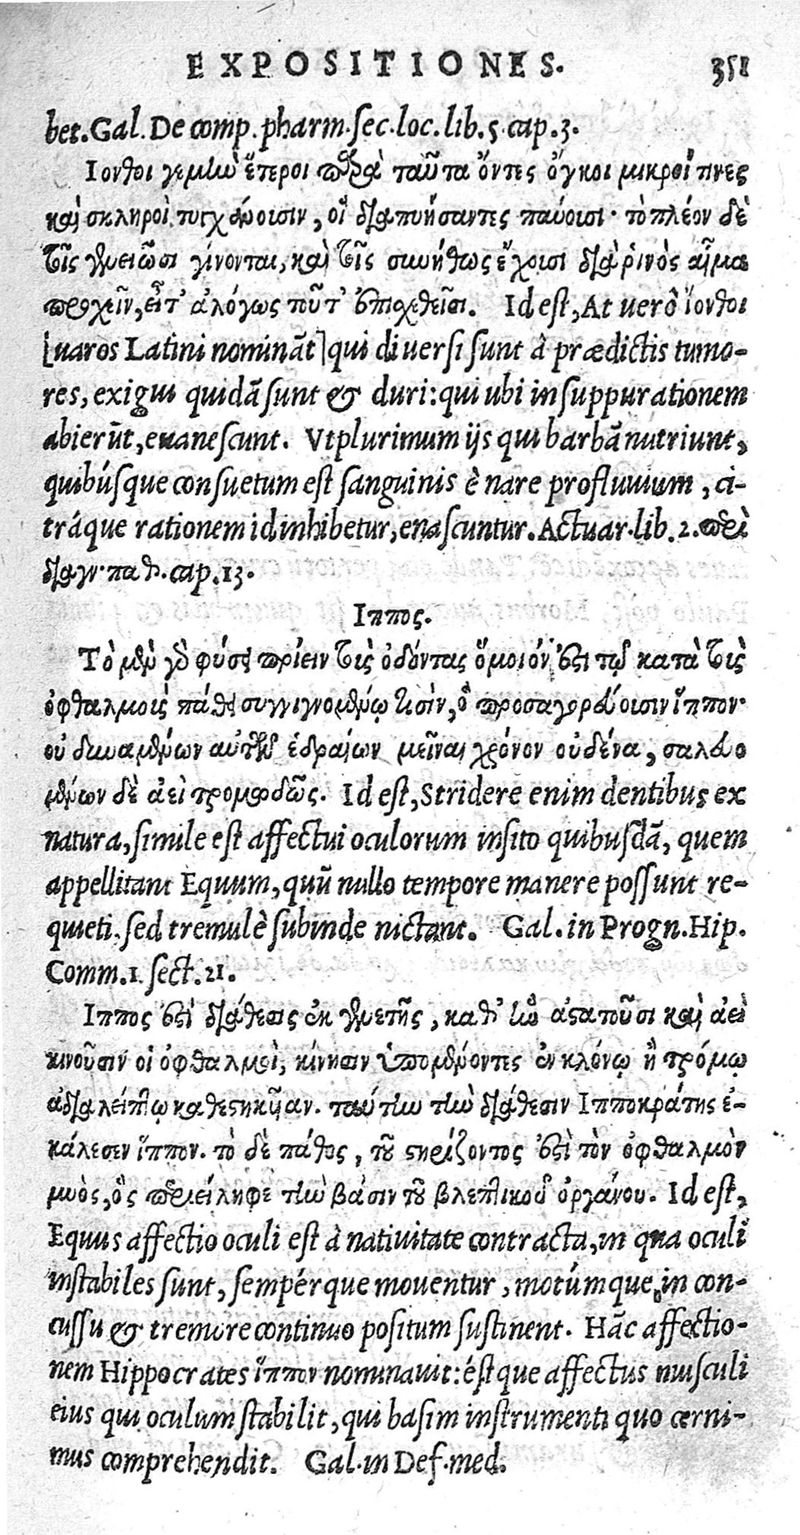 EXPOSITIONES. 351
bet. Gal. De comp. pharm. sec. loc. lib. 5. cap. 3.
Ιονθοι γεμὴν ἕτεροι παρὰ ταῦτα ὄντες ὄγκοι μικροί τινες
καὶ σκληροὶ τυγχάνουσιν, οἳ διαπυήσαντες παύουσι· τὸ πλέον δὲ
τοῖς γενειῶσι γίνονται, καὶ τοῖς συνήθως ἔχουσι διὰ ῥινὸς αἷμα
προχεῖν, εἶτ' ἀλόγως τοῦτ' ἐποχεθεῖσι. Id est, At verò ἴονθοι
[uaros Latini nominãt] qui diuersi sunt à prædictis tumo-
res, exigui quidã sunt & duri: qui ubi in suppurationem
abierũt, euanescunt. Vtplurimum ijs qui barbã nutriunt,
quibúsque consuetum est sanguinis è nare profluuium, ci-
tráque rationem id inhibetur, enascuntur. Actuar. lib. 2. περὶ
διαγν. παθ. cap. 13.
Ιππος.
Τὸ μὲν γὸ φύσει πρίειν τοὺς ὀδόντας ὅμοιόν ἐστι τῷ κατὰ τοὺς
ὀφθαλμοὺς πάθει συγγιγνομένῳ τισὶν, ὃ προσαγορεύουσιν ἵππον·
οὐ δυναμένων αὐτῶν ἑδραίων μεῖναι χρόνον οὐδένα, σαλευο
μένων δὲ ἀεὶ τρομωδῶς. Id est, Stridere enim dentibus ex
natura, simile est affectui oculorum insito quibusdã, quem
appellitant Equum, quũ nullo tempore manere possunt re-
quieti. sed tremulè subinde nictant. Gal. in Progn. Hip.
Comm. 1. sect. 21.
Ιππος ἐστὶ διάθεσις ἐκ γενετῆς, καθ' ἣν ἀστατοῦσι καὶ ἀεὶ
κινοῦσιν οἱ ὀφθαλμοὶ, κίνησιν ὑπομένοντες ἐν κλόνῳ ἢ τρόμῳ
ἀδιαλείπτῳ καθεστηκῆαν. ταύτην τὴν διάθεσιν Ιπποκράτης ἐ-
κάλεσεν ἵππον. τὸ δὲ πάθος, τοῦ στηρίζοντος ἐστὶ τὸν ὀφθαλμὸν
μυὸς, ὃς περιείληφε τὴν βάσιν τοῦ βλεπτικοῦ ὀργάνου. Id est,
Equus affectio oculi est à natiuitate contracta, in qua oculi
instabiles sunt, sempérque mouentur, motúmque in con-
cussu & tremore continuo positum sustinent. Hãc affectio-
nem Hippocrates ἵππον nominauit: éstque affectus musculi
eius qui oculum stabilit, qui basim instrumenti quo cerni-
mus comprehendit. Gal. in Def. med.